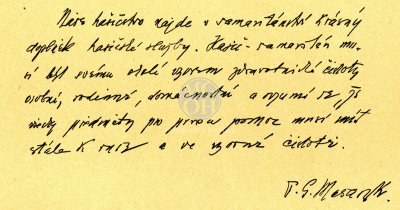 Naše hasičstvo najde v samaritánství krásný
doplněk hasičské služby. Hasič-samaritán mu-
sí být svému okolí vzorem zdravotnické čistoty
osobní, rodinné, domácnostní a rozumí se, že
všecky předměty pro první pomoc musí mít
stále k ruce a ve vzorné čistotě.
T. G. Masaryk.